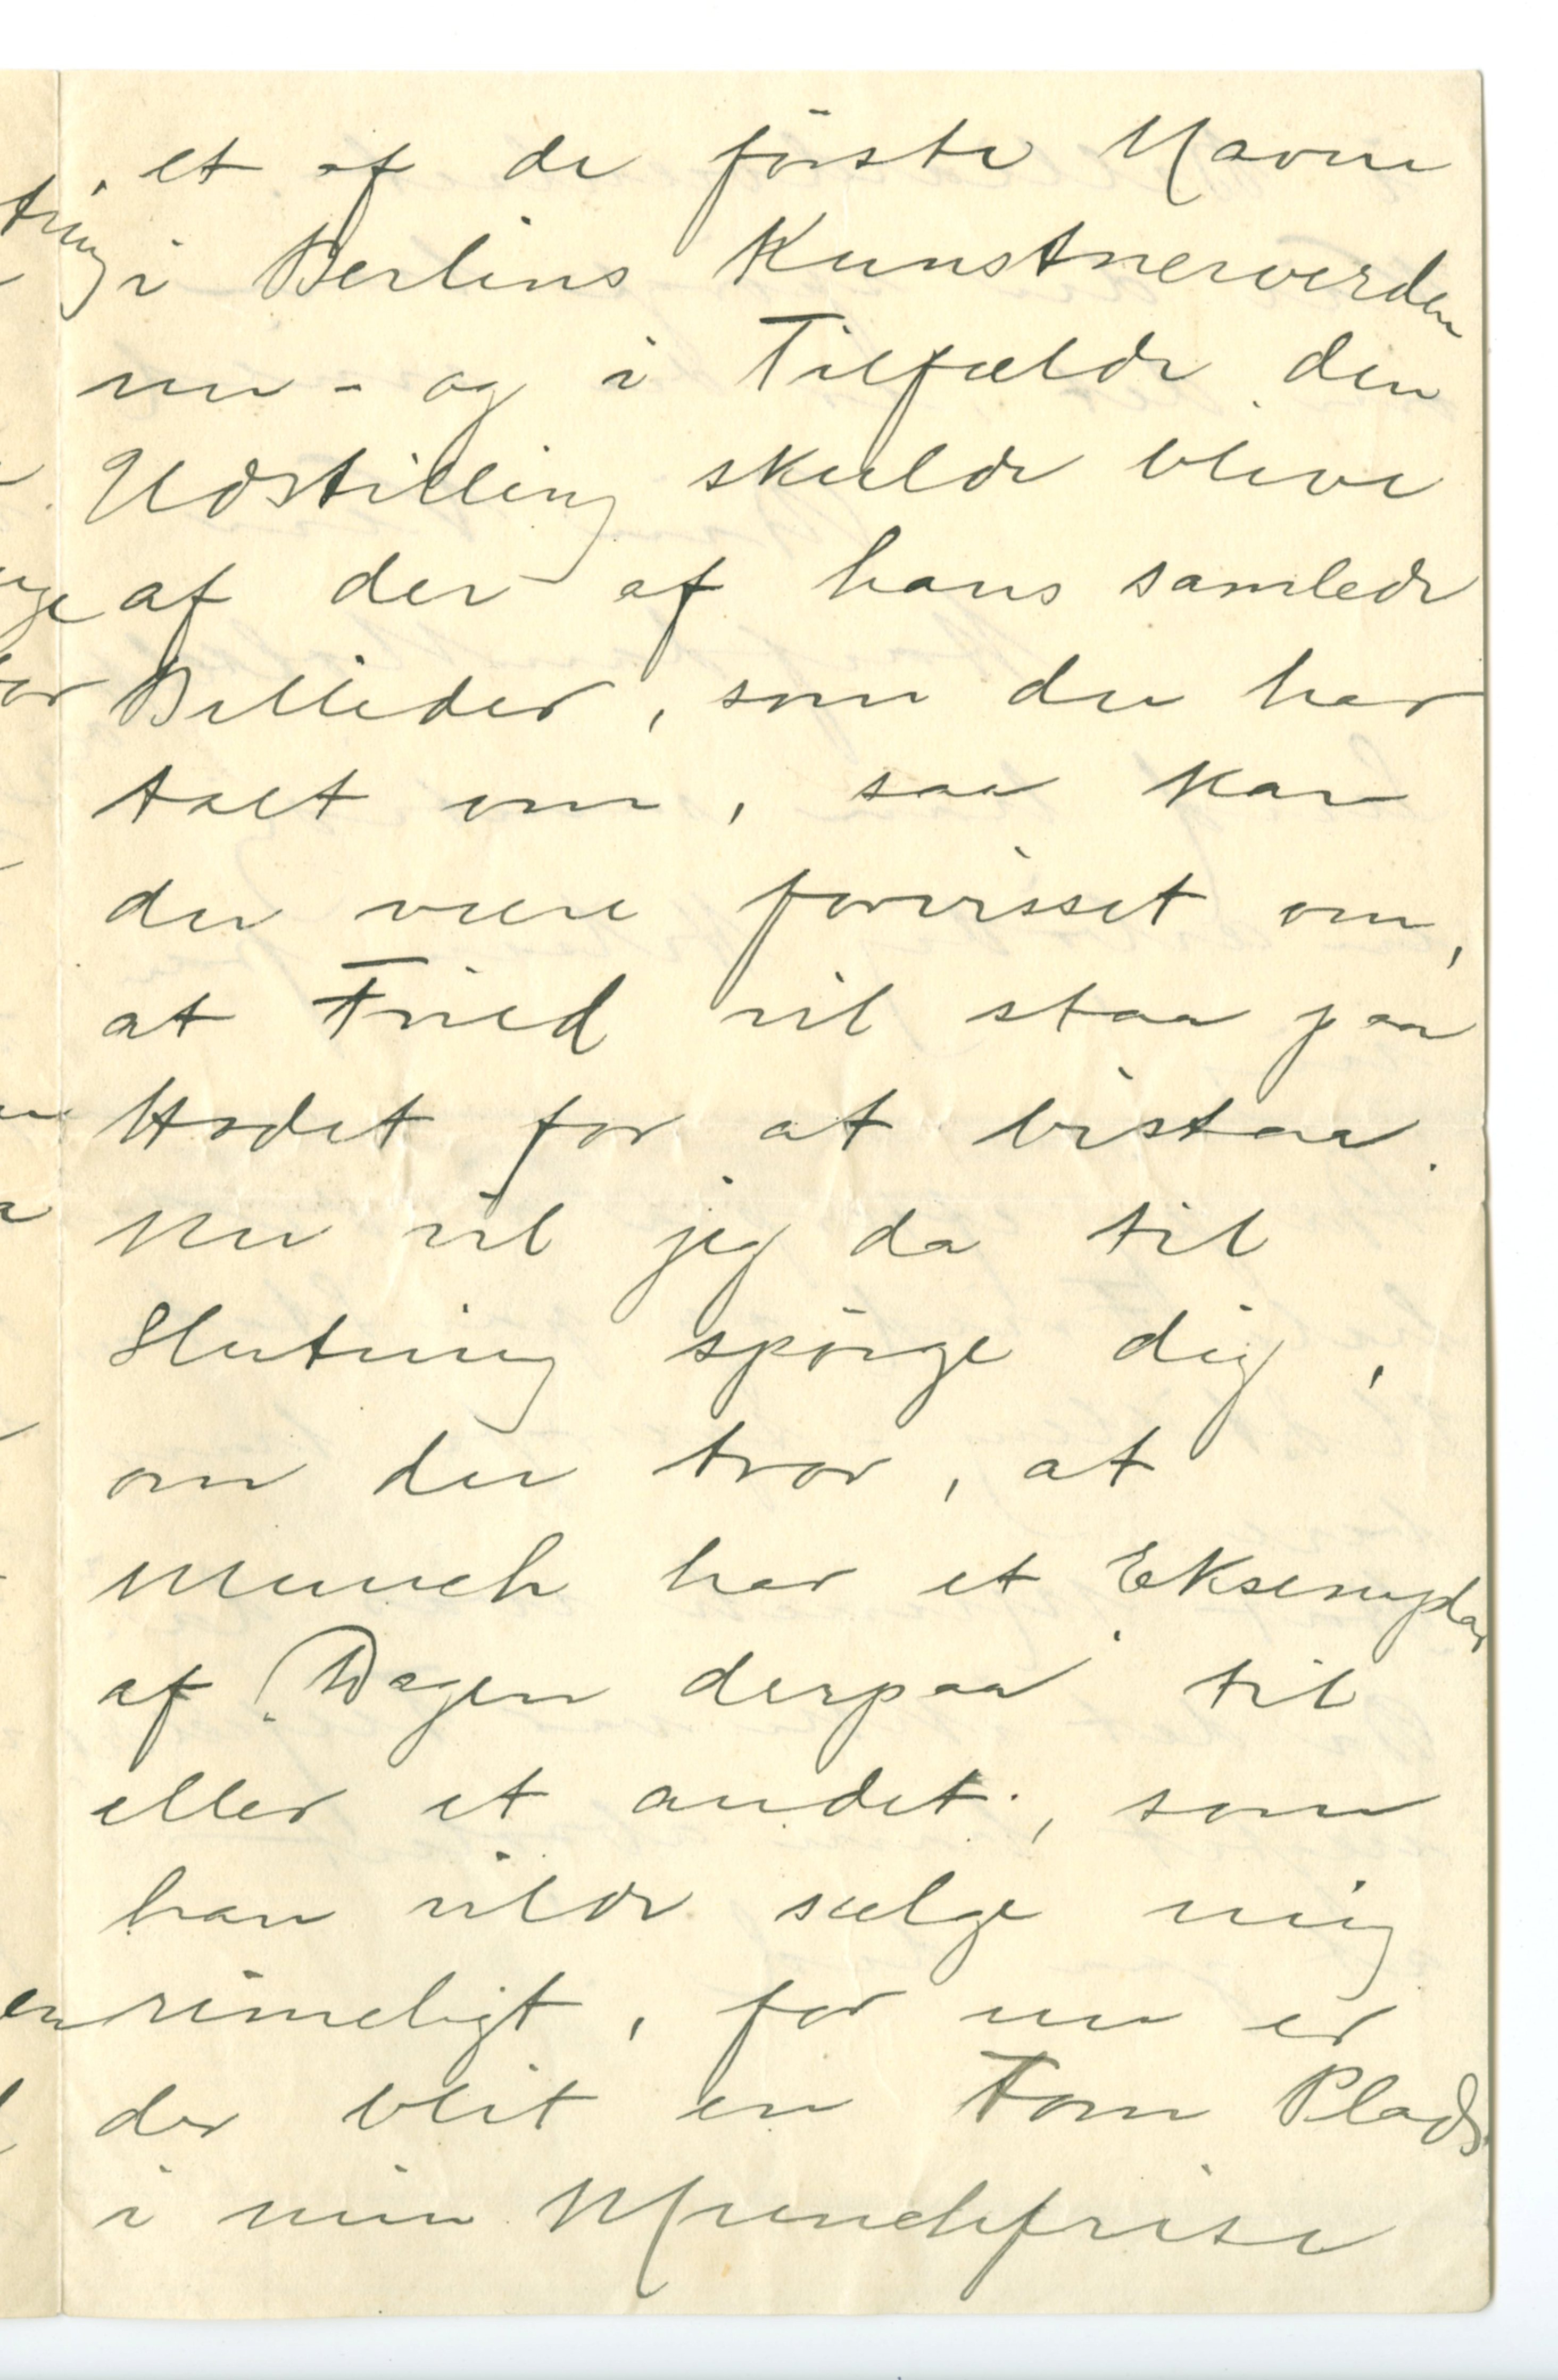 et af de förste Navne
i Berlins Kunstnerverden
nu - og i Tilfælde den
Udstilling skulde blive
af der af hans samlede
Billeder, som du har
talt om, saa kan
du være forvisset om,
at Fried vil staa paa
Hodet for at bistaa.
Nu vil jeg da til
Slutning spörge dig,
om du tror, at
Munch har et Eksemplar
af "Dagen derpaa" til
eller et andet, som
han vilde sælge mig
rimeligt, for nu er
der blit en Tom Plads
i min Munchfrise